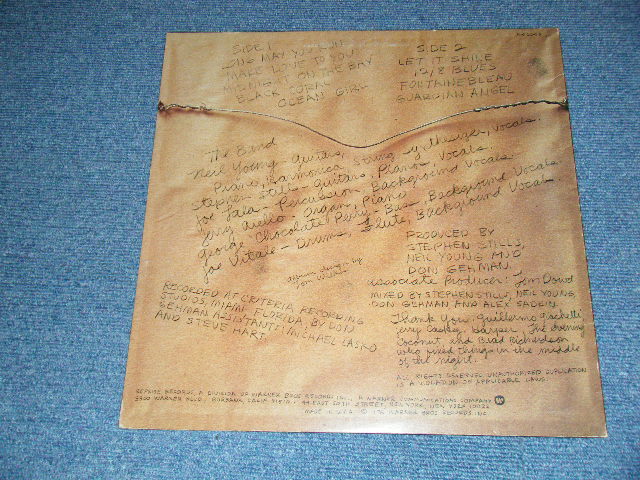 SIDE 1
LONG MAY YOU RUN
MAKE LOVE TO YOU
MIDNIGHT ON THE BAY
BLACK CORAL
OCEAN GIRL
SIDE 2
LET IT SHINE
12/8 BLUES
FONTAINEBLEAU
GUARDIAN ANGEL
The Band
Neil Young - Guitars,
Piano, Harmonica, String synthesizer, Vocals.
Stephen Stills - Guitars, Piano, Vocals.
Joe Lala - Percussion, Background Vocals
Jerry Aiello - Organ, Piano
George "Chocolate" Perry - Bass, Background Vocals
Joe Vitale - Drums, Flute, Background Vocals
album design by
Tom Wilkes
RECORDED AT CRITERIA RECORDING
STUDIOS, MIAMI FLORIDA, BY DON
GEHMAN ASSISTANTS: MICHAEL LASKO
AND STEVE HART.
PRODUCED BY
STEPHEN STILLS,
NEIL YOUNG AND
DON GEHMAN.
Associate Producer: Tom Dowd
MIXED BY STEPHEN STILLS, NEIL YOUNG,
DON GEHMAN AND ALEX SADKIN
Thank You, Guillermo Giachetti
Jerry The
Coconut, and Brad Richardson
who fixed things in the middle
of the night.
ALL RIGHTS RESERVED. UNAUTHORIZED DUPLICATION
IS A VIOLATION OF APPLICABLE LAWS.
REPRISE RECORDS, A DIVISION OF WARNER BROS RECORDS INC., A WARNER COMMUNICATIONS COMPANY
3300 WARNER BLVD., BURBANK, CALIF. 91510 · 44 EAST 50TH STREET, NEW YORK, NEW YORK 10022
MADE IN U.S.A. © 1976 WARNER BROS RECORDS INC.